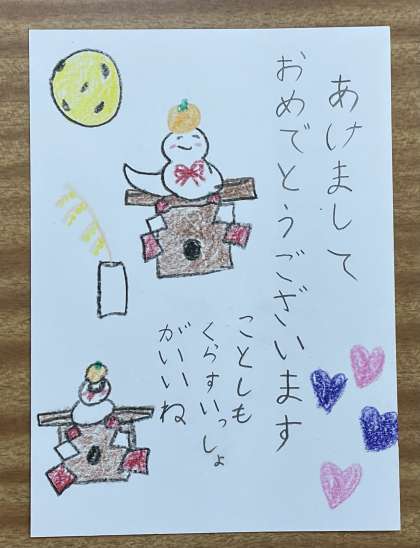 あけまして
おめでとうございます
ことしも
くらすいっしょ
がいいね